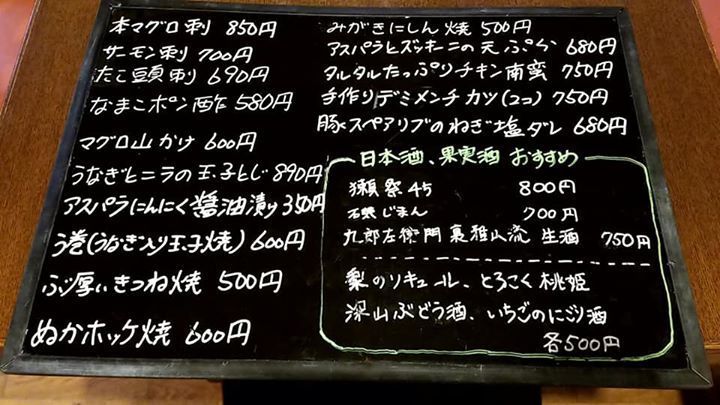 本マグロ刺 850円
サーモン刺 700円
たこ頭刺 690円
なまこポン酢 580円
マグロ山かけ 600円
うなぎとニラの玉子とじ 890円
アスパラにんにく醤油漬け 350円
う巻(うなぎ入り玉子焼) 600円
ぶ厚いきつね焼 500円
ぬかホッケ焼 600円
みがきにしん焼 500円
アスパラとズッキーニの天ぷら 680円
タルタルたっぷりチキン南蛮 750円
手作りデミメンチカツ(2コ) 750円
豚スペアリブのねぎ塩ダレ 680円
日本酒、果実酒 おすすめ
獺祭45 800円
磯じまん 700円
九郎左衛門 裏雅山流 生酒 750円
梨のリキュール、とろこく桃姫
深山ぶどう酒、いちごのにごり酒
各500円